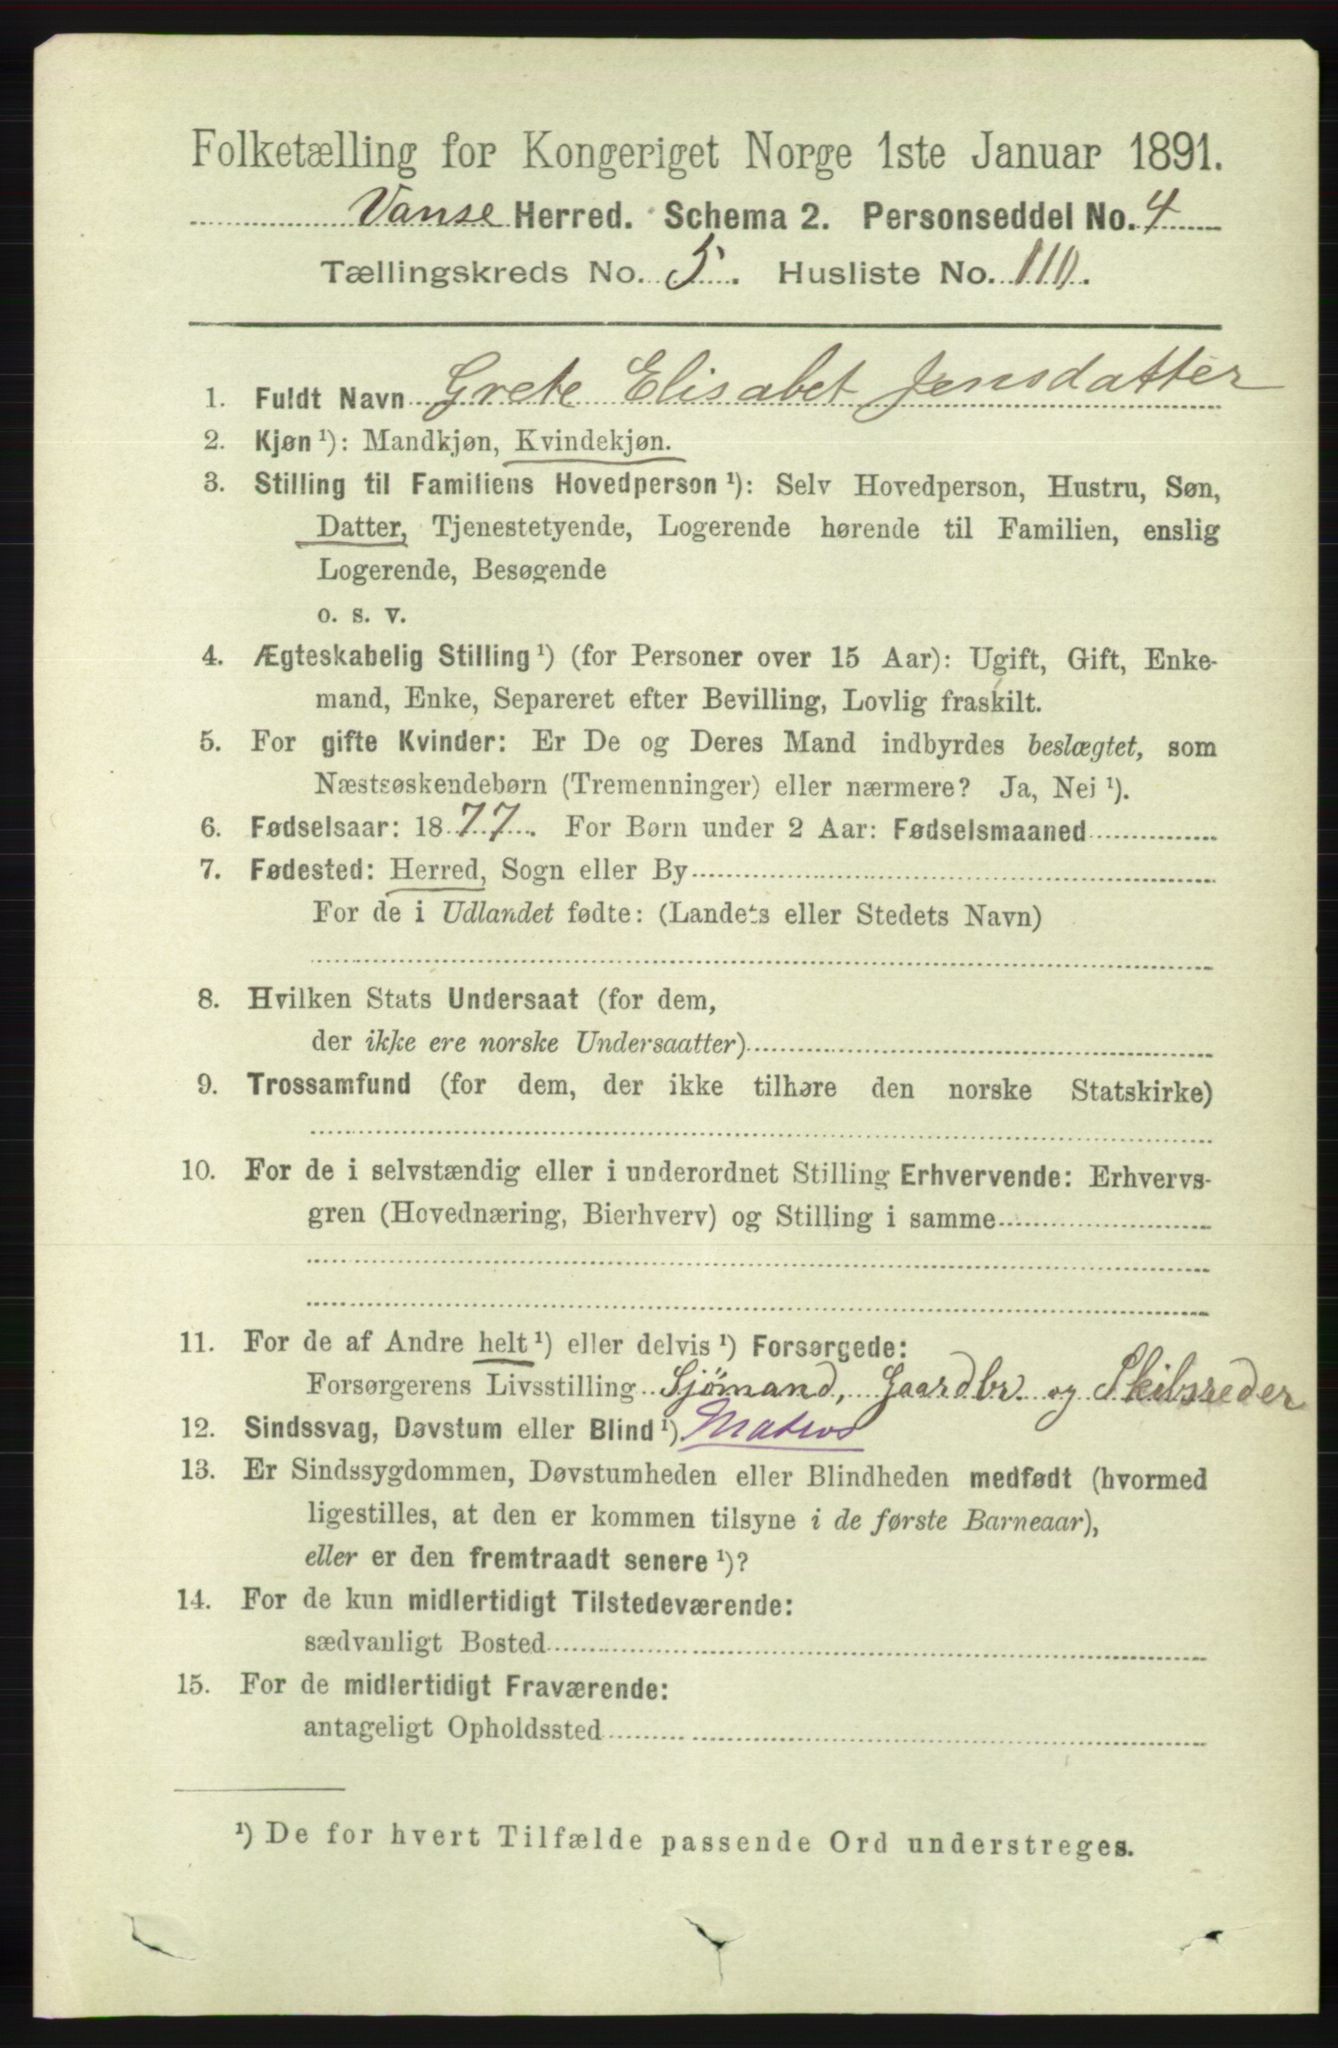 Folketælling for Kongeriget Norge 1ste Januar 1891.
Vanse Herred. Schema 2. Personseddel No. 4
Tællingskreds No. 5. Husliste No. 110.
1. Fuldt Navn Grete Elisabet Jensdatter
2. Kjøn ¹): Mandkjøn, Kvindekjøn.
3. Stilling til Familiens Hovedperson ¹): Selv Hovedperson, Hustru, Søn,
Datter, Tjenestetyende, Logerende hørende til Familien, enslig
Logerende, Besøgende
o. s. v.
4. Ægteskabelig Stilling ¹) (for Personer over 15 Aar): Ugift, Gift, Enke-
mand, Enke, Separeret efter Bevilling, Lovlig fraskilt.
5. For gifte Kvinder: Er De og Deres Mand indbyrdes beslægtet, som
Næstsøskendebørn (Tremenninger) eller nærmere? Ja, Nei ¹).
6. Fødselsaar: 1877. For Børn under 2 Aar: Fødselsmaaned
7. Fødested: Herred, Sogn eller By
For de i Udlandet fødte: (Landets eller Stedets Navn)
8. Hvilken Stats Undersaat (for dem,
der ikke ere norske Undersaatter)
9. Trossamfund (for dem, der ikke tilhøre den norske Statskirke)
10. For de i selvstændig eller i underordnet Stilling Erhvervende: Erhvervs-
gren (Hovednæring, Bierhverv) og Stilling i samme
11. For de af Andre helt ¹) eller delvis ¹) Forsørgede:
Forsørgerens Livsstilling Sjömand, Gaardbr. og Skibsreder
12. Sindssvag, Døvstum eller Blind ¹).
13. Er Sindssygdommen, Døvstumheden eller Blindheden medfødt (hvormed
ligestilles, at den er kommen tilsyne i de første Barneaar),
eller er den fremtraadt senere ¹)?
14. For de kun midlertidigt Tilstedeværende:
sædvanligt Bosted
15. For de midlertidigt Fraværende:
antageligt Opholdssted
¹) De for hvert Tilfælde passende Ord understreges.